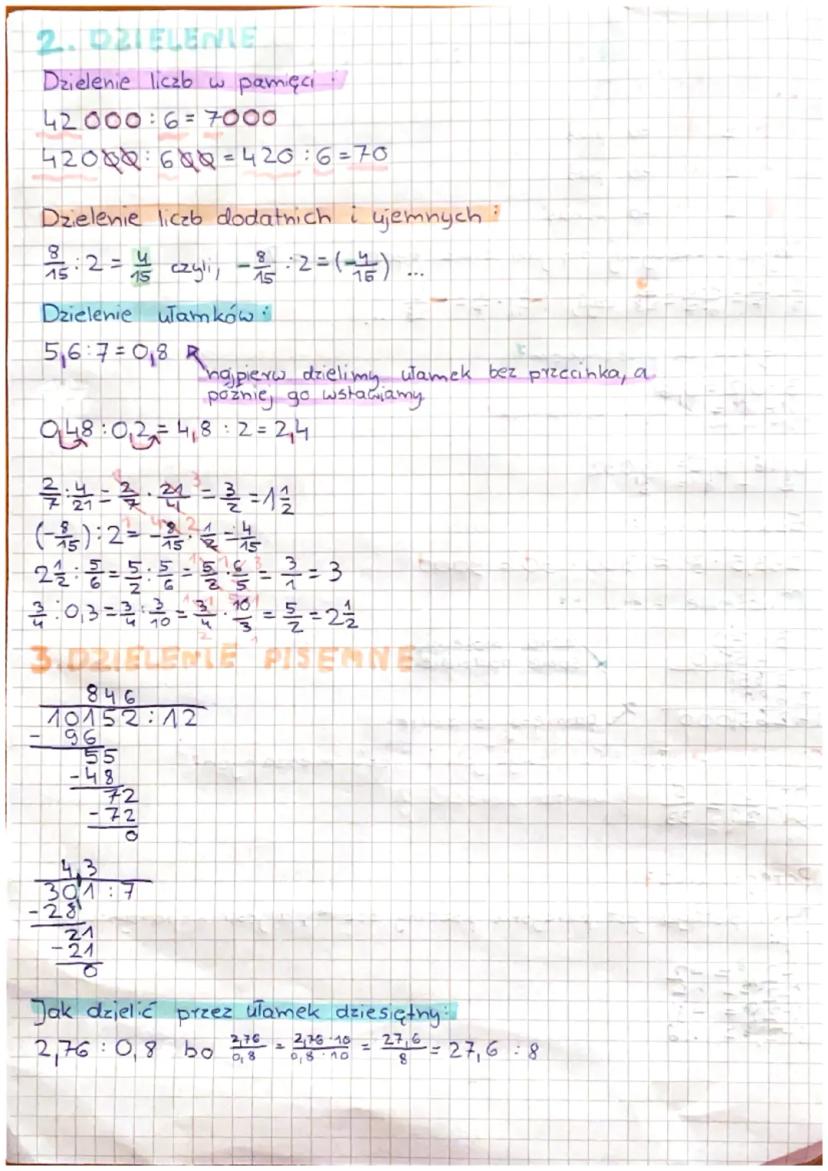 2. DZIELENIE
Dzielenie liczb w pamięci :
42 000 : 6 = 7000
42000 : 600 = 420 : 6 = 70
Dzielenie liczb dodatnich i ujemnych :
8/15 : 2 = 4/15 czyli, -8/15 : 2 = (-4/15) ...
Dzielenie ułamków :
5,6 : 7 = 0,8
najpierw dzielimy ułamek bez przecinka, a
poźniej go wstawiamy
0,48 : 0,2 = 4,8 : 2 = 2,4
2/7 : 4/21 = 2/7 · 21/4 = 3/2 = 1 1/2
(-8/15) : 2 = -8/15 · 1/2 = 4/15
2 1/2 : 5/6 = 5/2 : 5/6 = 5/2 · 6/5 = 3/1 = 3
3/4 : 0,3 = 3/4 : 3/10 = 3/4 · 10/3 = 5/2 = 2 1/2
3. DZIELENIE PISEMNE
846
10152 : 12
- 96
55
- 48
72
- 72
0
4,3
301 : 7
- 28
21
- 21
0
Jak dzielić przez ułamek dziesiętny:
2,76 : 0,8 bo 2,76/0,8 = 2,76 · 10/0,8 · 10 = 27,6/8 = 27,6 : 8